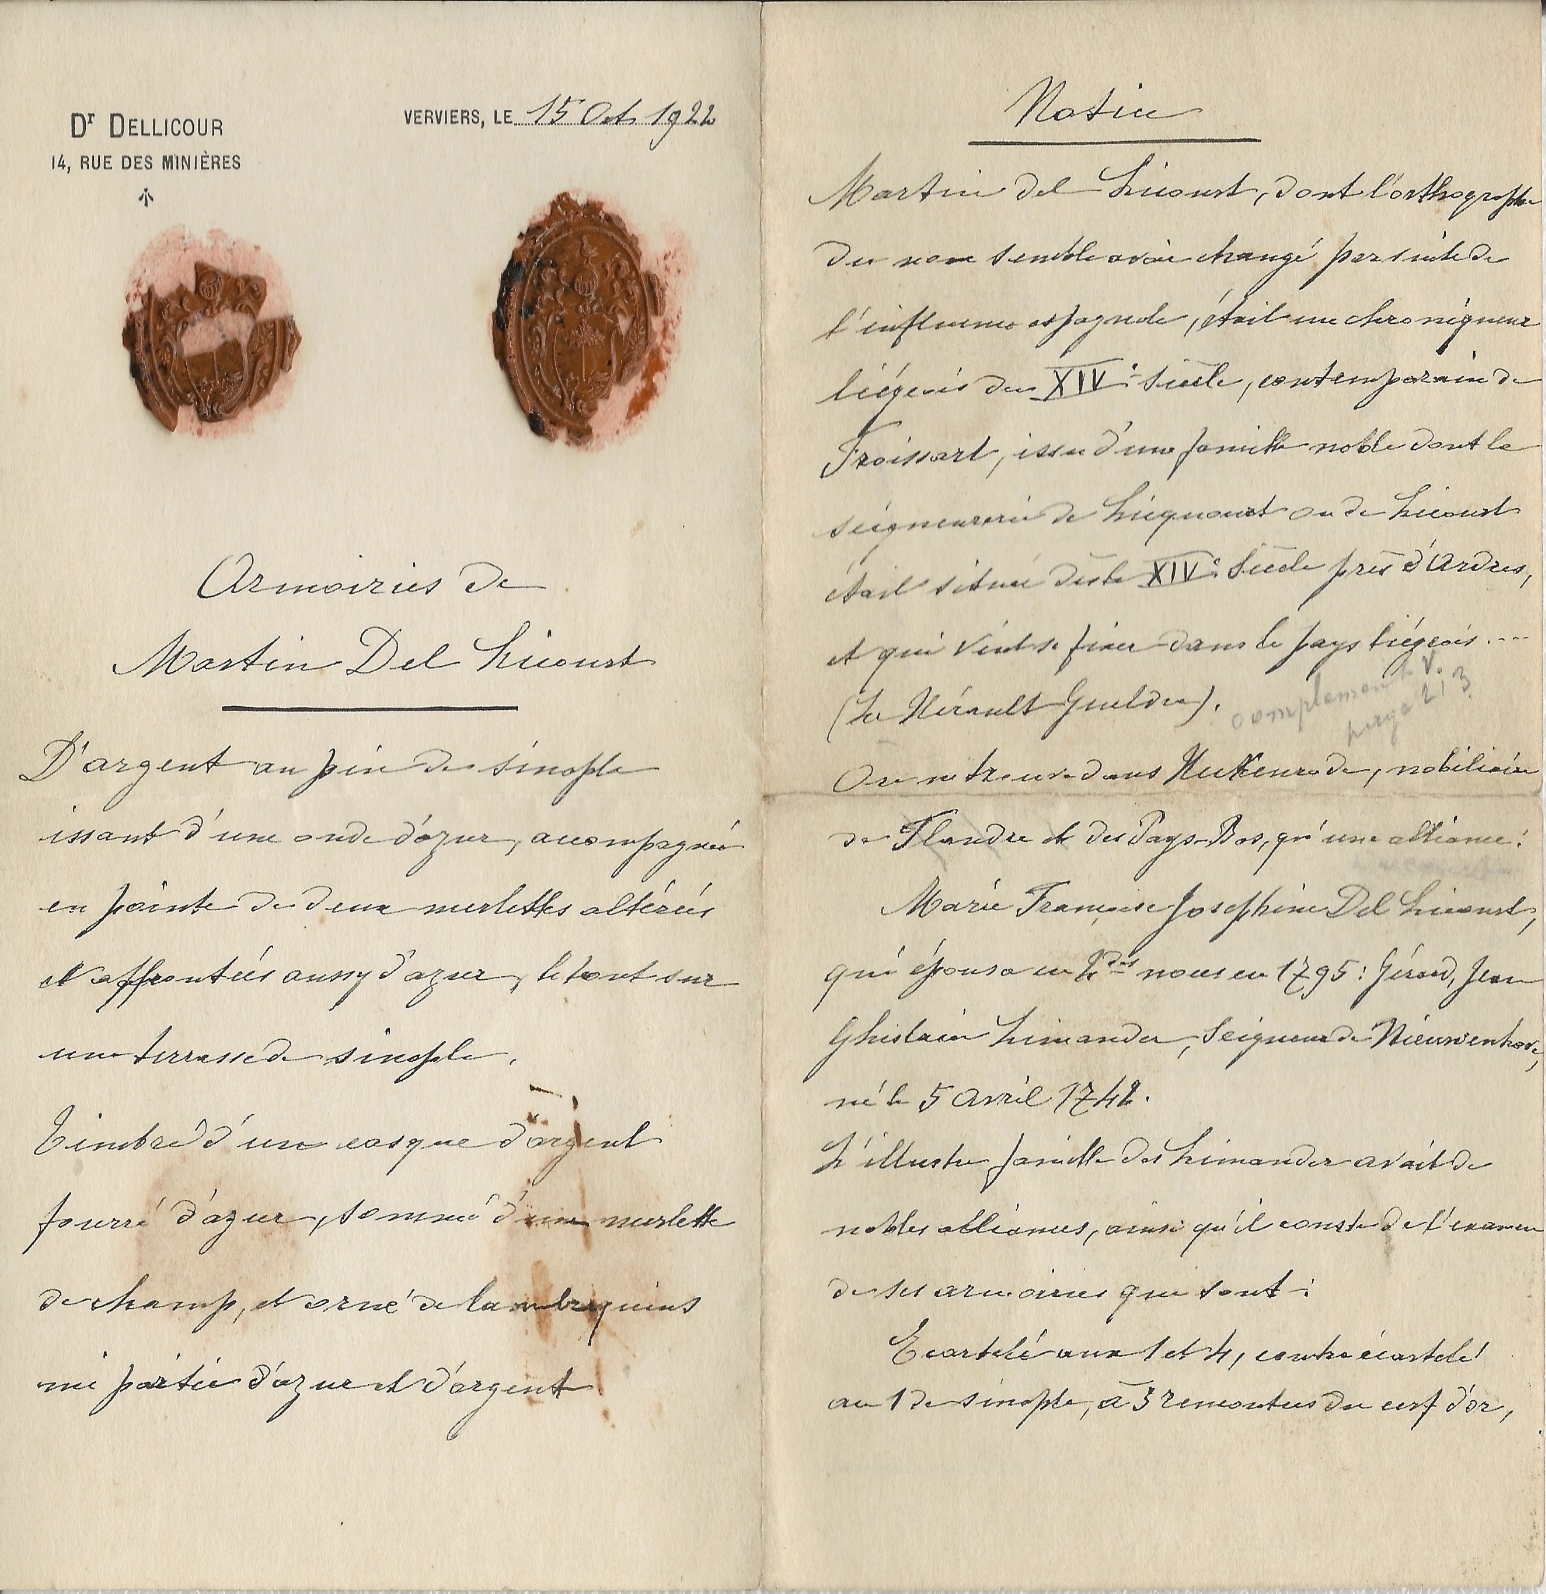 Dr DELLICOUR
14, RUE DES MINIÈRES
VERVIERS, LE 15 Oct 1922
Armoiries de
Martin Del Licourt
D'argent au pin de sinople
issant d'une onde d'azur, accompagné
en pointe de deux merlettes altérées
et affrontées aussy d'azur, le tout sur
une terrasse de sinople.
Timbré d'un casque d'argent
fourré d'azur, sommé d'une merlette
de champ, et orné de lambrequins
mi partie d'azur et d'argent
Notice
Martin del Licourt, dont l'orthographe
du nom semble avoir changé par suite de
l'influence espagnole, était un chroniqueur
liégeois du XIVe siècle, contemporain de
Froissart, issu d'une famille noble dont la
seigneurerie de Liequourt ou de Licourt
était située dès le XIVe siècle près d'Ardres,
et qui vint se fixer dans le pays liégeois....
(Le Hérault Gueldre).
complement V.
page 213
On ne trouve dans Herkenrode, nobiliaire
de Flandre et des Pays-Bas, qu'une alliance:
Marie Françoise Josephine Del Licourt,
qui épousa en 2des noces en 1795: Gérard, Jean
Ghislain Limander, Seigneur de Nieuwenhove,
né le 5 avril 1742.
L'illustre famille des Limander avait de
nobles alliances, ainsi qu'il conste de l'examen
de ses armoiries qui sont:
Ecartelé aux 1 et 4, contre écartelé
au 1 de sinople, à 3 rencontres du cerf d'or,